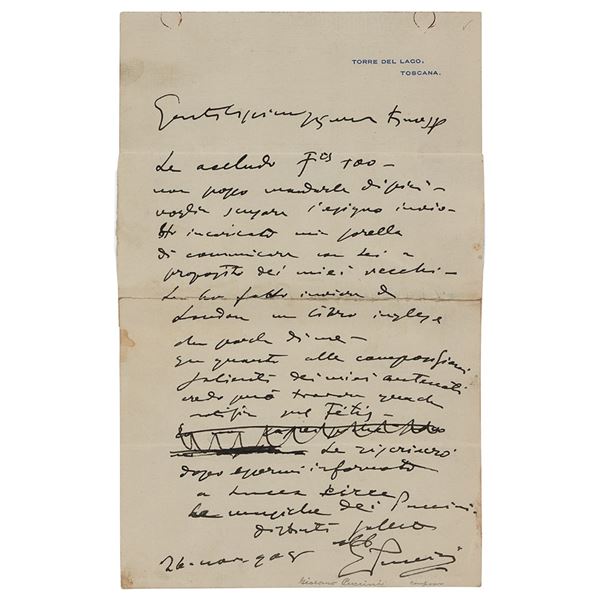 TORRE DEL LAGO,
TOSCANA.
Gentilissima Signora
Le accludo Fcs 100 –
non posso mandarle di più –
voglia scusare l'esiguo invio –
Ho incaricato mia sorella
di comunicare con Lei a
proposito dei miei vecchi –
Le ho fatto inviare da
London un libro inglese
che parla di me –
In quanto alle composizioni
salienti dei miei antenati
credo può trovare qualche
notizia sul Fétis –
Le riscriverò
dopo essermi informato
a Lucca circa
le musiche dei Puccini.
distinti saluti
G Puccini
26
Giacomo Puccini